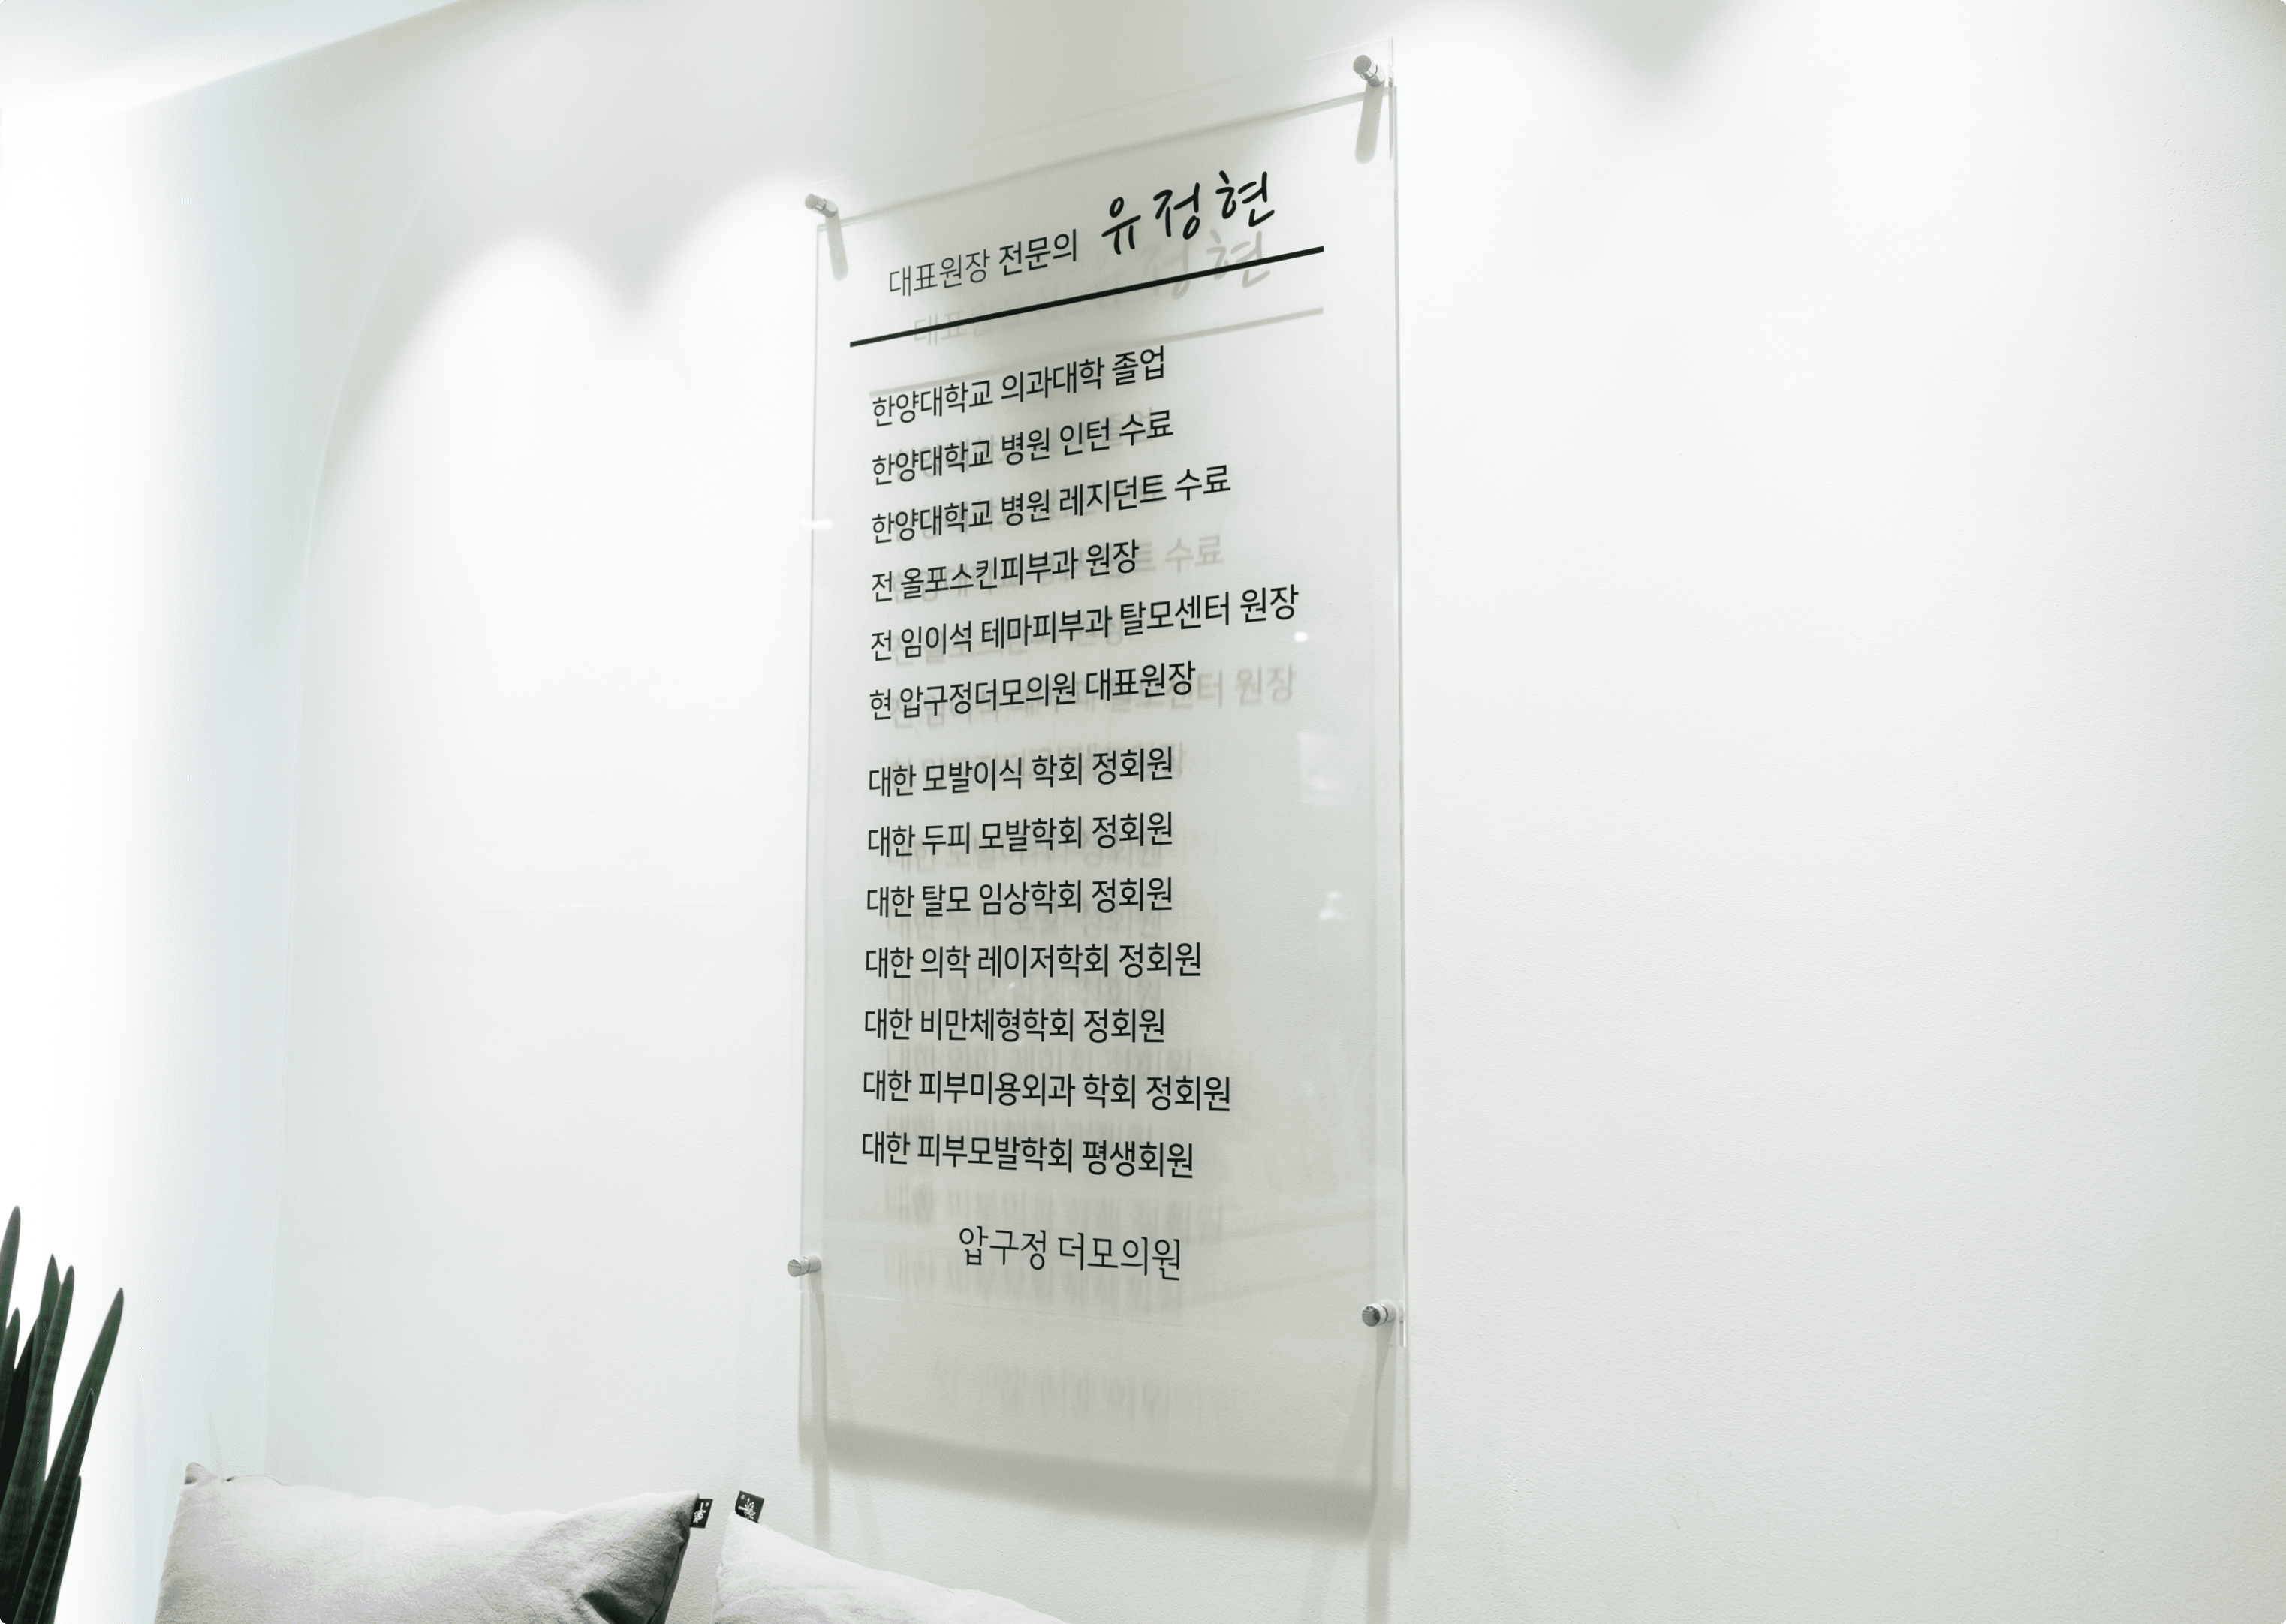 대표원장 전문의 유정현
한양대학교 의과대학 졸업
한양대학교 병원 인턴 수료
한양대학교 병원 레지던트 수료
전 올포스킨피부과 원장
전 임이석 테마피부과 탈모센터 원장
현 압구정더모의원 대표원장
대한 모발이식 학회 정회원
대한 두피 모발학회 정회원
대한 탈모 임상학회 정회원
대한 의학 레이저학회 정회원
대한 비만체형학회 정회원
대한 피부미용외과 학회 정회원
대한 피부모발학회 평생회원
압구정 더모의원